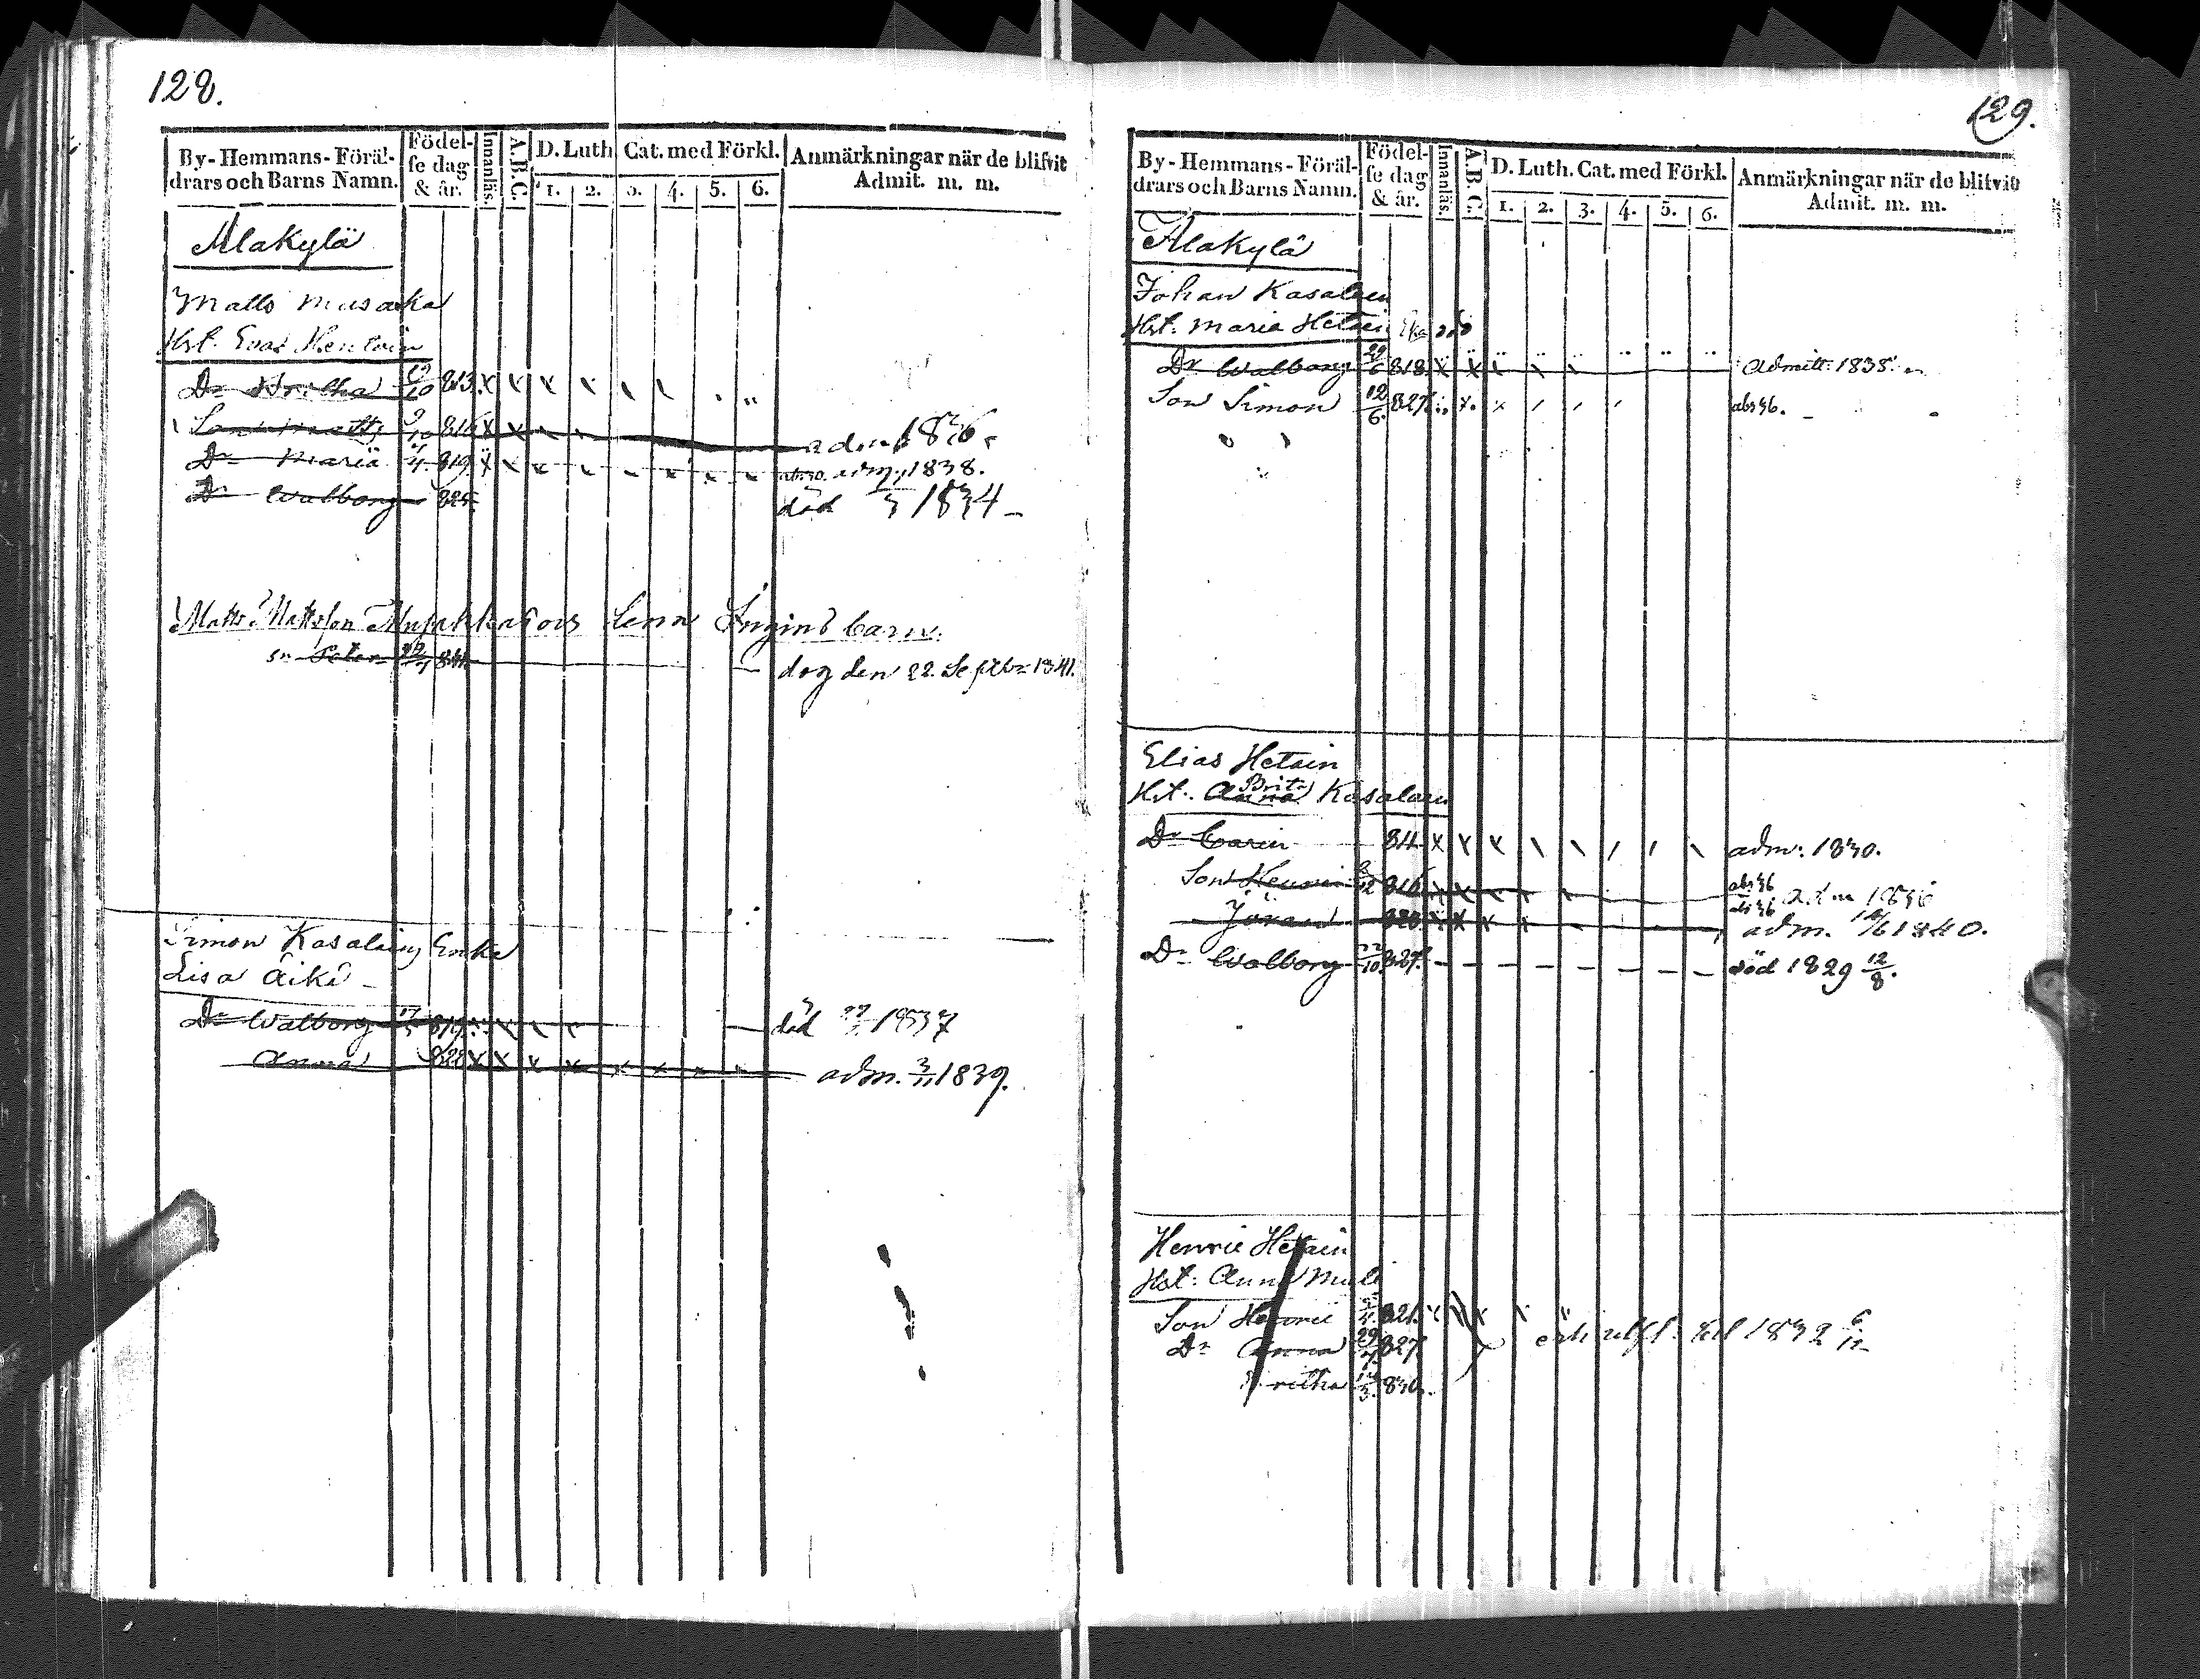 128.
By-Hemmans-Föräl-
drars och Barns Namn.
Födel-
se dag
& år.
Innanläs.
A.B.C.
D. Luth. Cat. med Förkl.
1. 2. 3. 4. 5. 6.
Anmärkningar när de blifvit
Admit. m. m.
Alakylä
Matts Musakka
Hst. Eva
Dr Britha 10 813. x x x
Son Matts 9/10 816 x x adm 1836.
Dr Maria 819. x adm. 1838.
Dr Walborg 825. död 1834
Matts Mattsson Enn Ingins barn.
sn Peter 841. dog den 22. Septbr 1841.
Simon Kasalain Enka
Lisa Äikä
Dr Walborg 819. död 1837
Anna 822 x x x x x x x adm. 3/11 1839.
129.
By-Hemmans-Föräl-
drars och Barns Namn.
Födel-
se dag
& år.
Innanläs.
A.B.C.
D. Luth. Cat. med Förkl.
1. 2. 3. 4. 5. 6.
Anmärkningar när de blifvit
Admit. m. m.
Alakylä
Johan Kasalain
Hst. Maria Hetain
Dr Walborg 29/6 818. x x Admitt: 1835.
Son Simon 12/6. 827. x. x abs 36.
Elias Hetain
Brita
Hst. Anna Kasalain
Dr Carin 814. x x x adm: 1830.
Son Henric 12 816 x x x abs 36 adm 1836
Jöran 820. x x x abs 36 adm. 14/6 1840.
Dr Walborg 22/10 827. död 1829 12/8.
Henric Hetain
Hst: Anna Muli
Son Henric 821. x x
Dr Anna 29 827.
Britha 830. till 1832 6/12